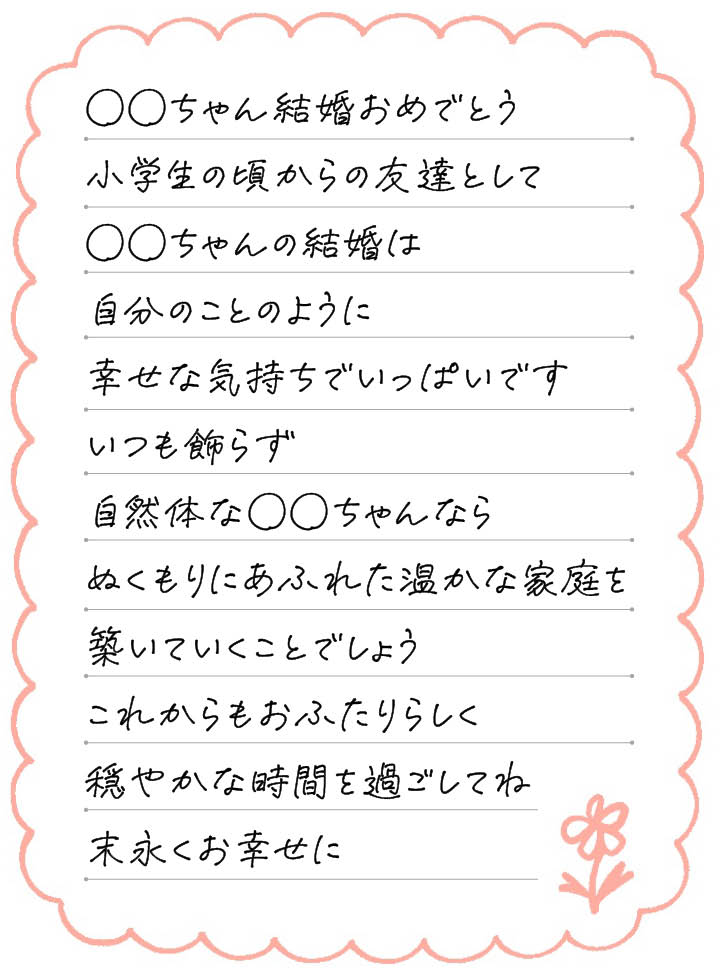 〇〇ちゃん結婚おめでとう
小学生の頃からの友達として
〇〇ちゃんの結婚は
自分のことのように
幸せな気持ちでいっぱいです
いつも飾らず
自然体な〇〇ちゃんなら
ぬくもりにあふれた温かな家庭を
築いていくことでしょう
これからもおふたりらしく
穏やかな時間を過ごしてね
末永くお幸せに